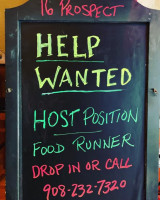 16 PROSPECT
HELP
WANTED
HOST POSITION
FOOD RUNNER
DROP IN OR CALL
908-232-7320